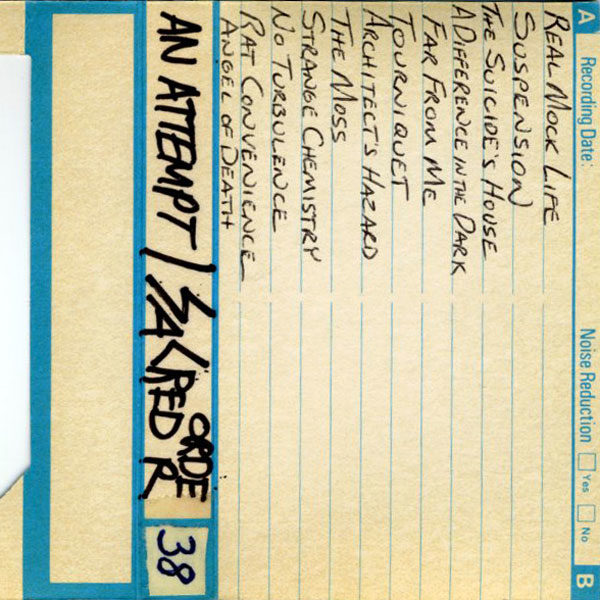 A
Recording Date:
Noise Reduction
Yes
No
B
REAL MOCK LIFE
SUSPENSION
THE SUICIDE'S HOUSE
A DIFFERENCE IN THE DARK
FAR FROM ME
TOURNIQUET
ARCHITECT'S HAZARD
THE MOSS
STRANGE CHEMISTRY
NO TURBULENCE
RAT CONVENIENCE
ANGEL OF DEATH
AN ATTEMPT / SACRED ORDER
38